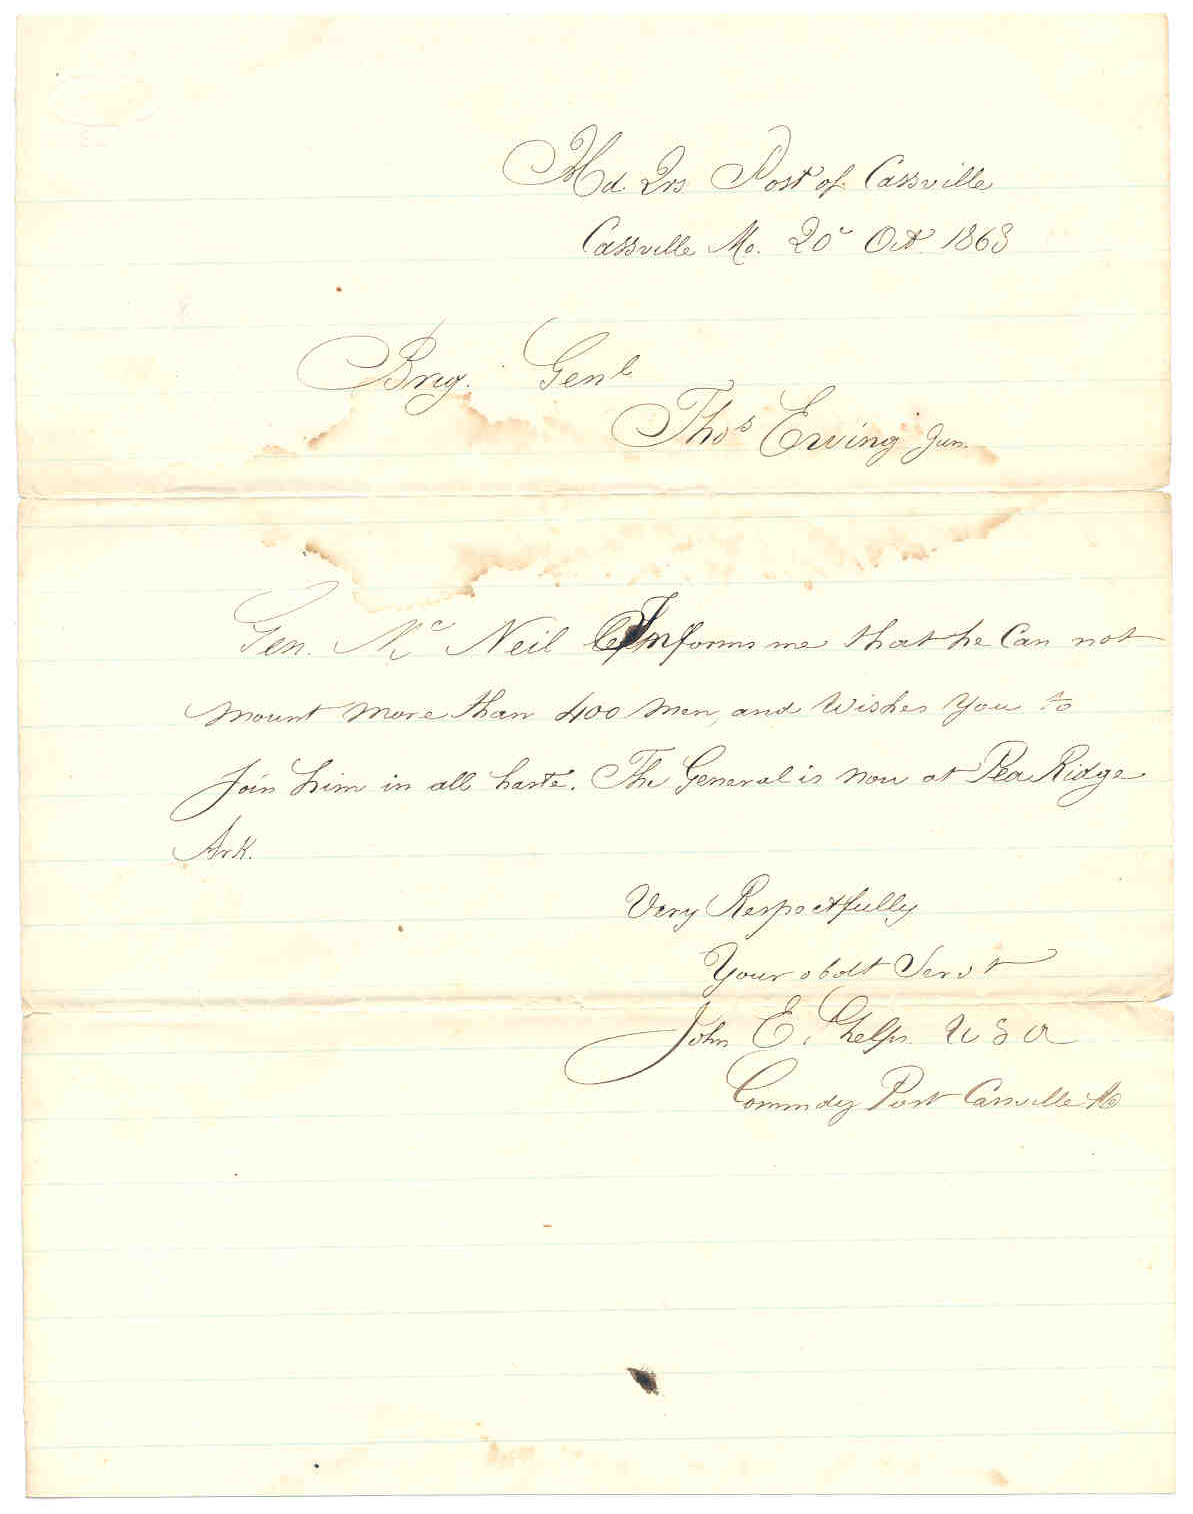 Hd. Qrs Post of Cassville
Cassville Mo. 20" Oct. 1863
Brig. Genl
Thos Ewing Jun.
Gen. Mc Neil Informs me that he Can not
mount more than 400 men, and Wishes You to
Join him in all haste. The General is now at Pea Ridge
Ark.
Very Respectfully
Your obdt Servt
John E. Phelps. U S A
Commdg Post Cassville Mo